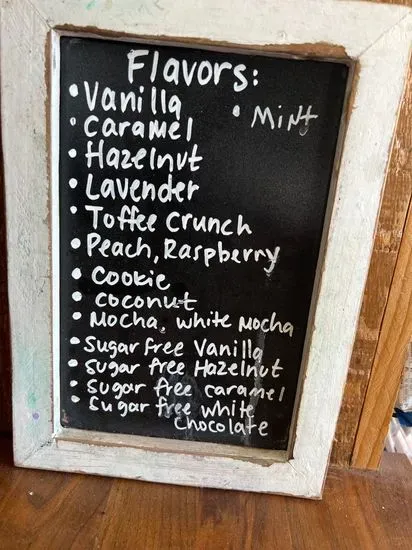 Flavors:
• Vanilla
• Mint
• Caramel
• Hazelnut
• Lavender
• Toffee Crunch
• Peach, Raspberry
• Cookie
• coconut
• Mocha, white Mocha
• Sugar free Vanilla
• Sugar free Hazelnut
• Sugar free caramel
• Sugar free white
chocolate